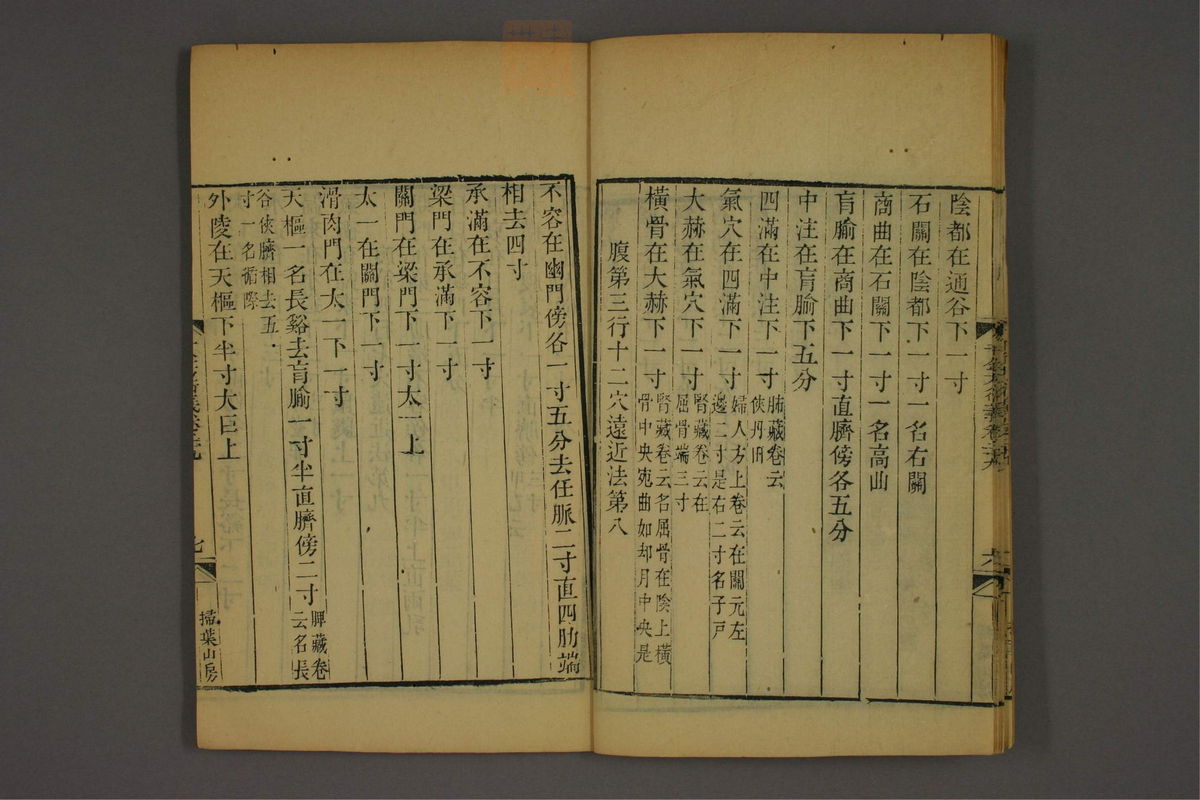 陰都在通谷下一寸
石關在陰都下一寸一名右關
商曲在石關下一寸一名高曲
肓腧在商曲下一寸直臍傍各五分
中注在肓腧下五分
四滿在中注下一寸肺藏卷云
俠丹田
氣穴在四滿下一寸婦人方上卷云在關元左
邊二寸是右二寸名子戸
大赫在氣穴下一寸腎藏卷云在
屈骨端三寸
橫骨在大赫下一寸腎藏卷云名屈骨在陰上橫
骨中央宛曲如却月中央是
腹第三行十二穴遠近法第八
不容在幽門傍各一寸五分去任脈二寸直四肋端
相去四寸
承滿在不容下一寸
梁門在承滿下一寸
關門在梁門下一寸太一上
太一在關門下一寸
滑肉門在太一下一寸
天樞一名長谿去肓腧一寸半直臍傍二寸脾藏卷
云名長
谷俠臍相去五
寸一名循際
外陵在天樞下半寸大巨上
七
掃葉山房